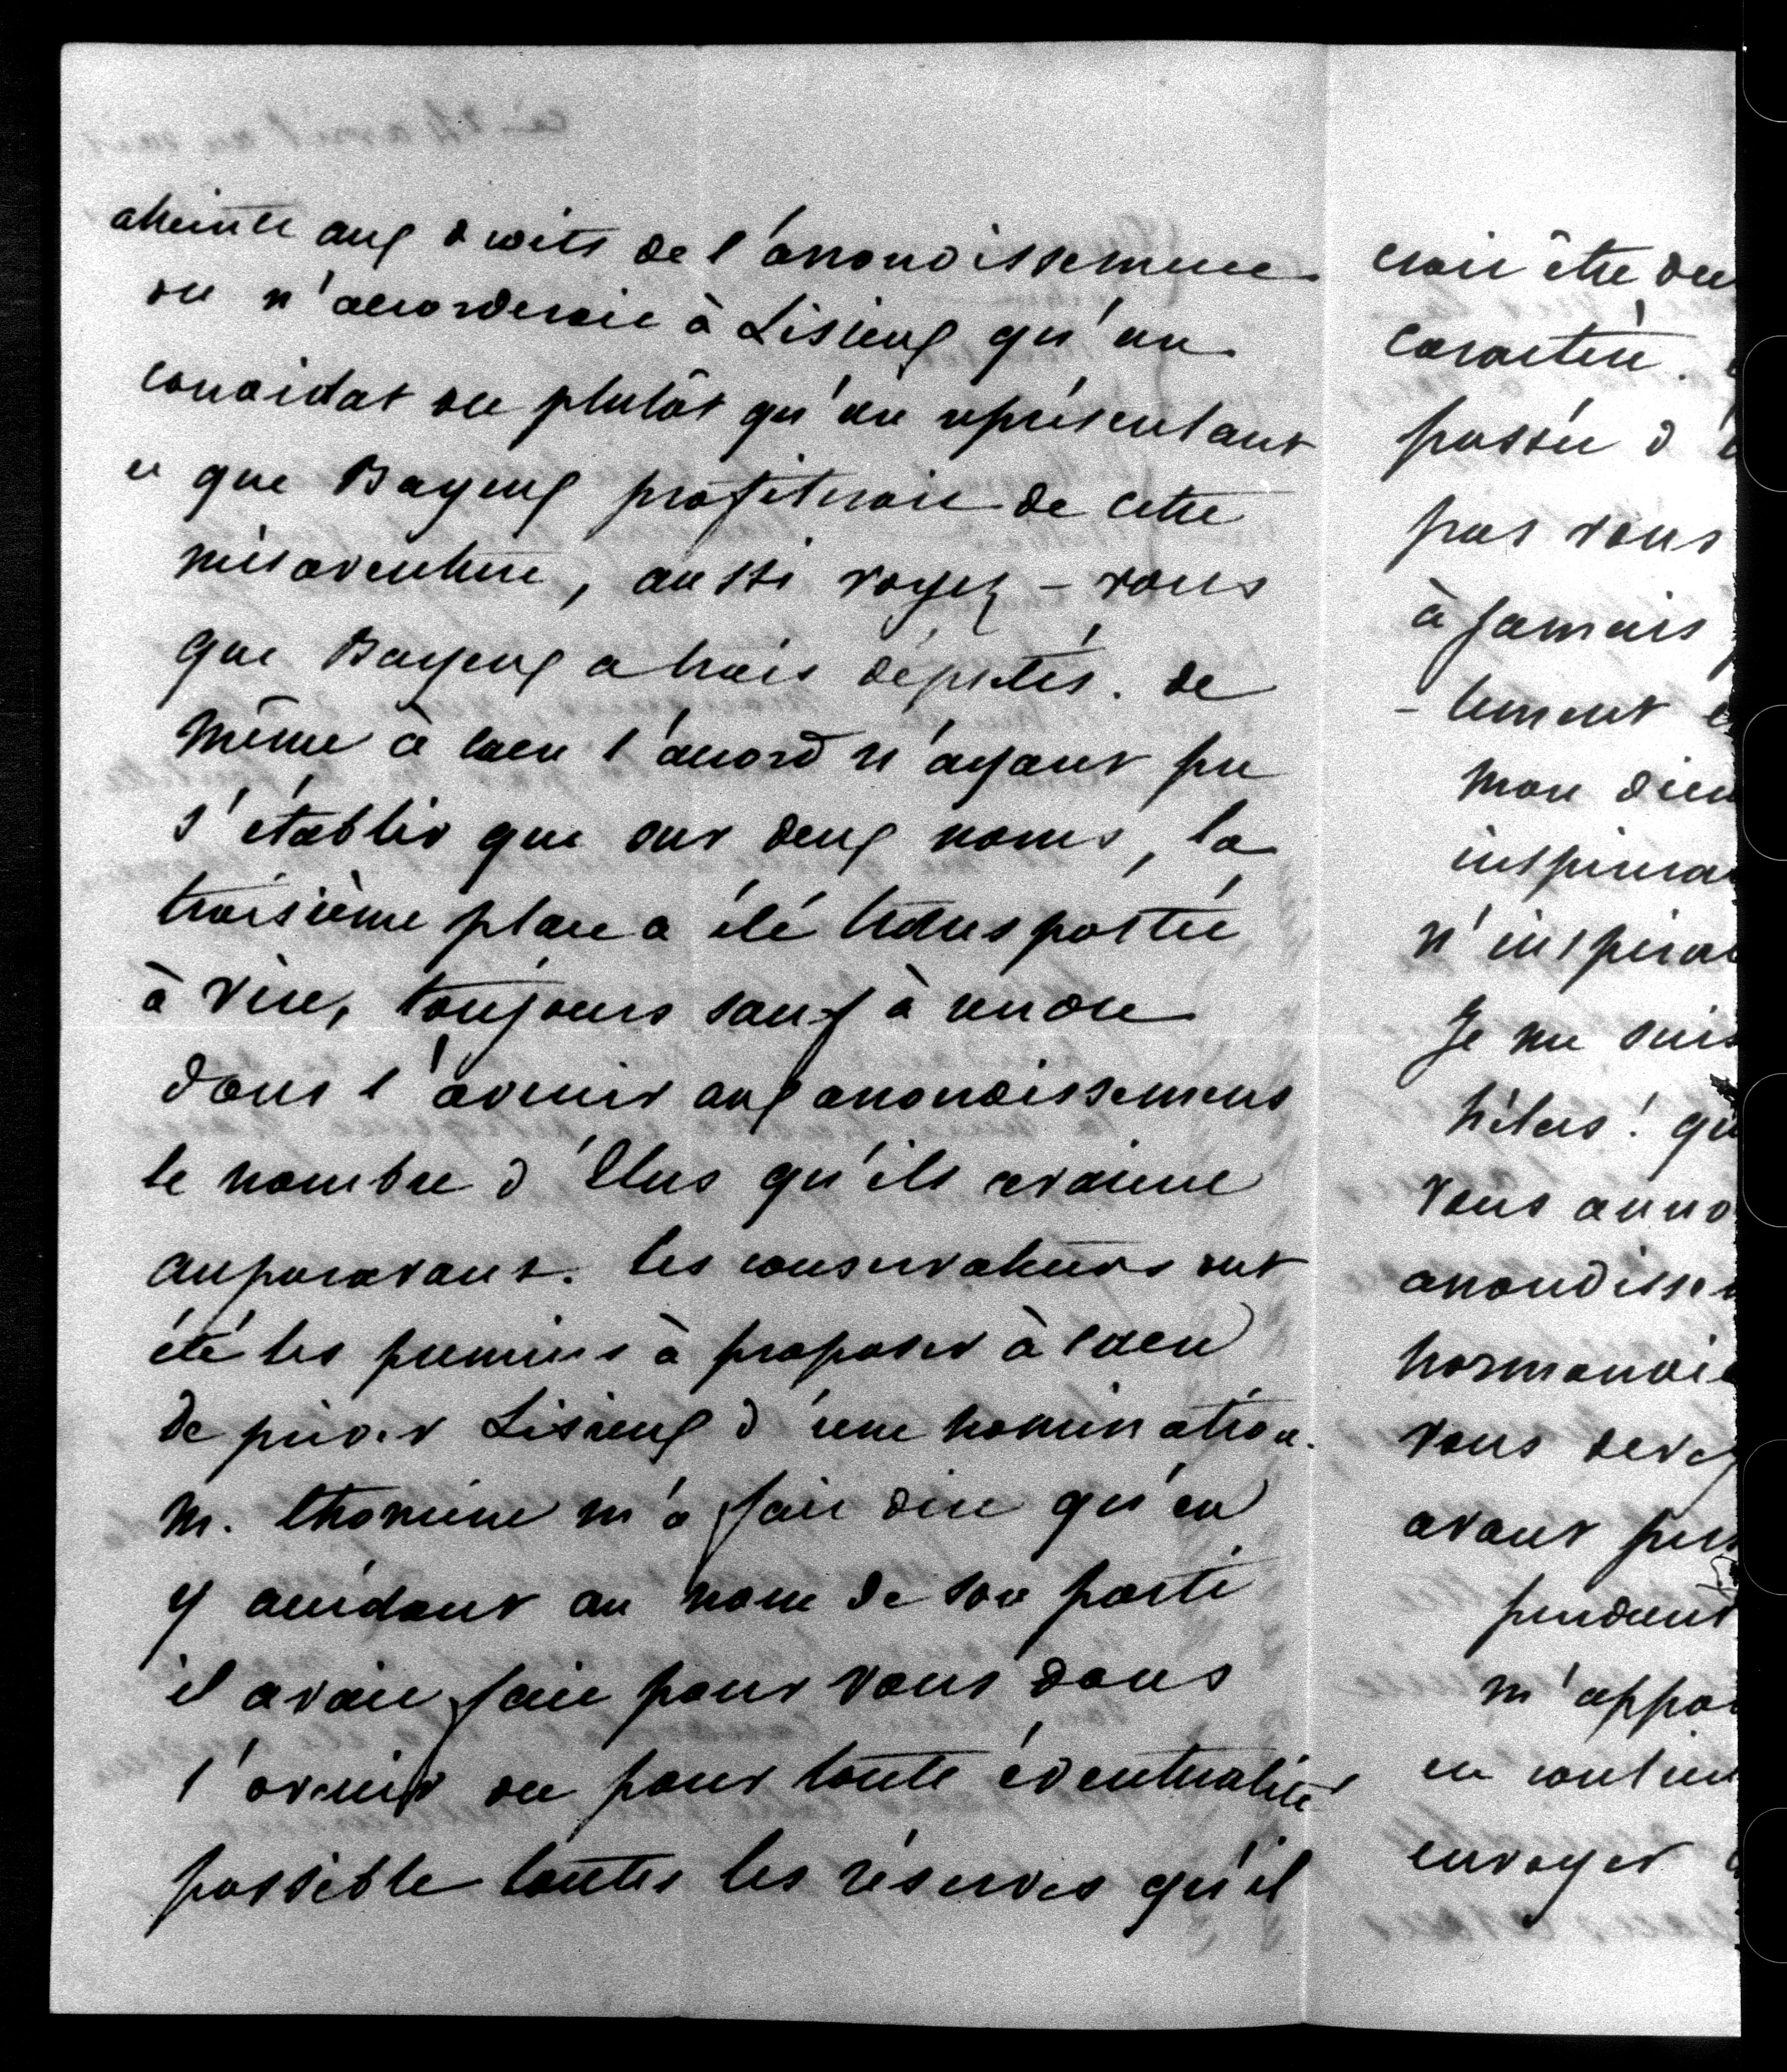 atteinte aux droits de l'arrondissement
on n'accorderait à Lisieux qu'un
candidat ou plutôt qu'un représentant
et que Bayeux profiterait de cette
mésaventure, aussi voyez-vous
que Bayeux a trois députés. de
même à Caen l'accord n'ayant pu
s'établir que sur deux noms, la
troisième place a été transportée
à Vire, toujours sauf à rendre
dans l'avenir aux arrondissements
le nombre d'Élus qu'ils avaient
auparavant. les conservateurs ont
été les premiers à proposer à Caen
de priver Lisieux d'une nomination.
M. thomine m'a fait dire qu'en
y accédant au nom de son parti
il avait fait pour vous dans
l'avenir ou pour toute éventualité
possible toutes les réserves qu'il
croit être de
caractère.
passée d'
pas vous
à jamais
-lement
mon dieu
inspira
n'inspira
Je me suis
hélas! qu
vous anno
arrondisse
normandie
vous devez
avant
pendant
m'appo
en
envoyer